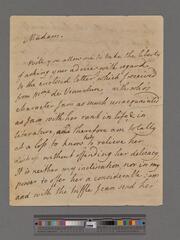 Madam.
Will you allow me to take the liberty
of asking your advice with regard
to the enclosed letter which I received
from Mme de Vranclure, with whose
character I am as much unacquainted
as I am with her rank in life & in
literature, and therefore am totally
at a loss to know how to relieve her
without offending her delicacy
It is neither my inclination nor in my
power to offer her a considerable sum
and with the trifle I can send her